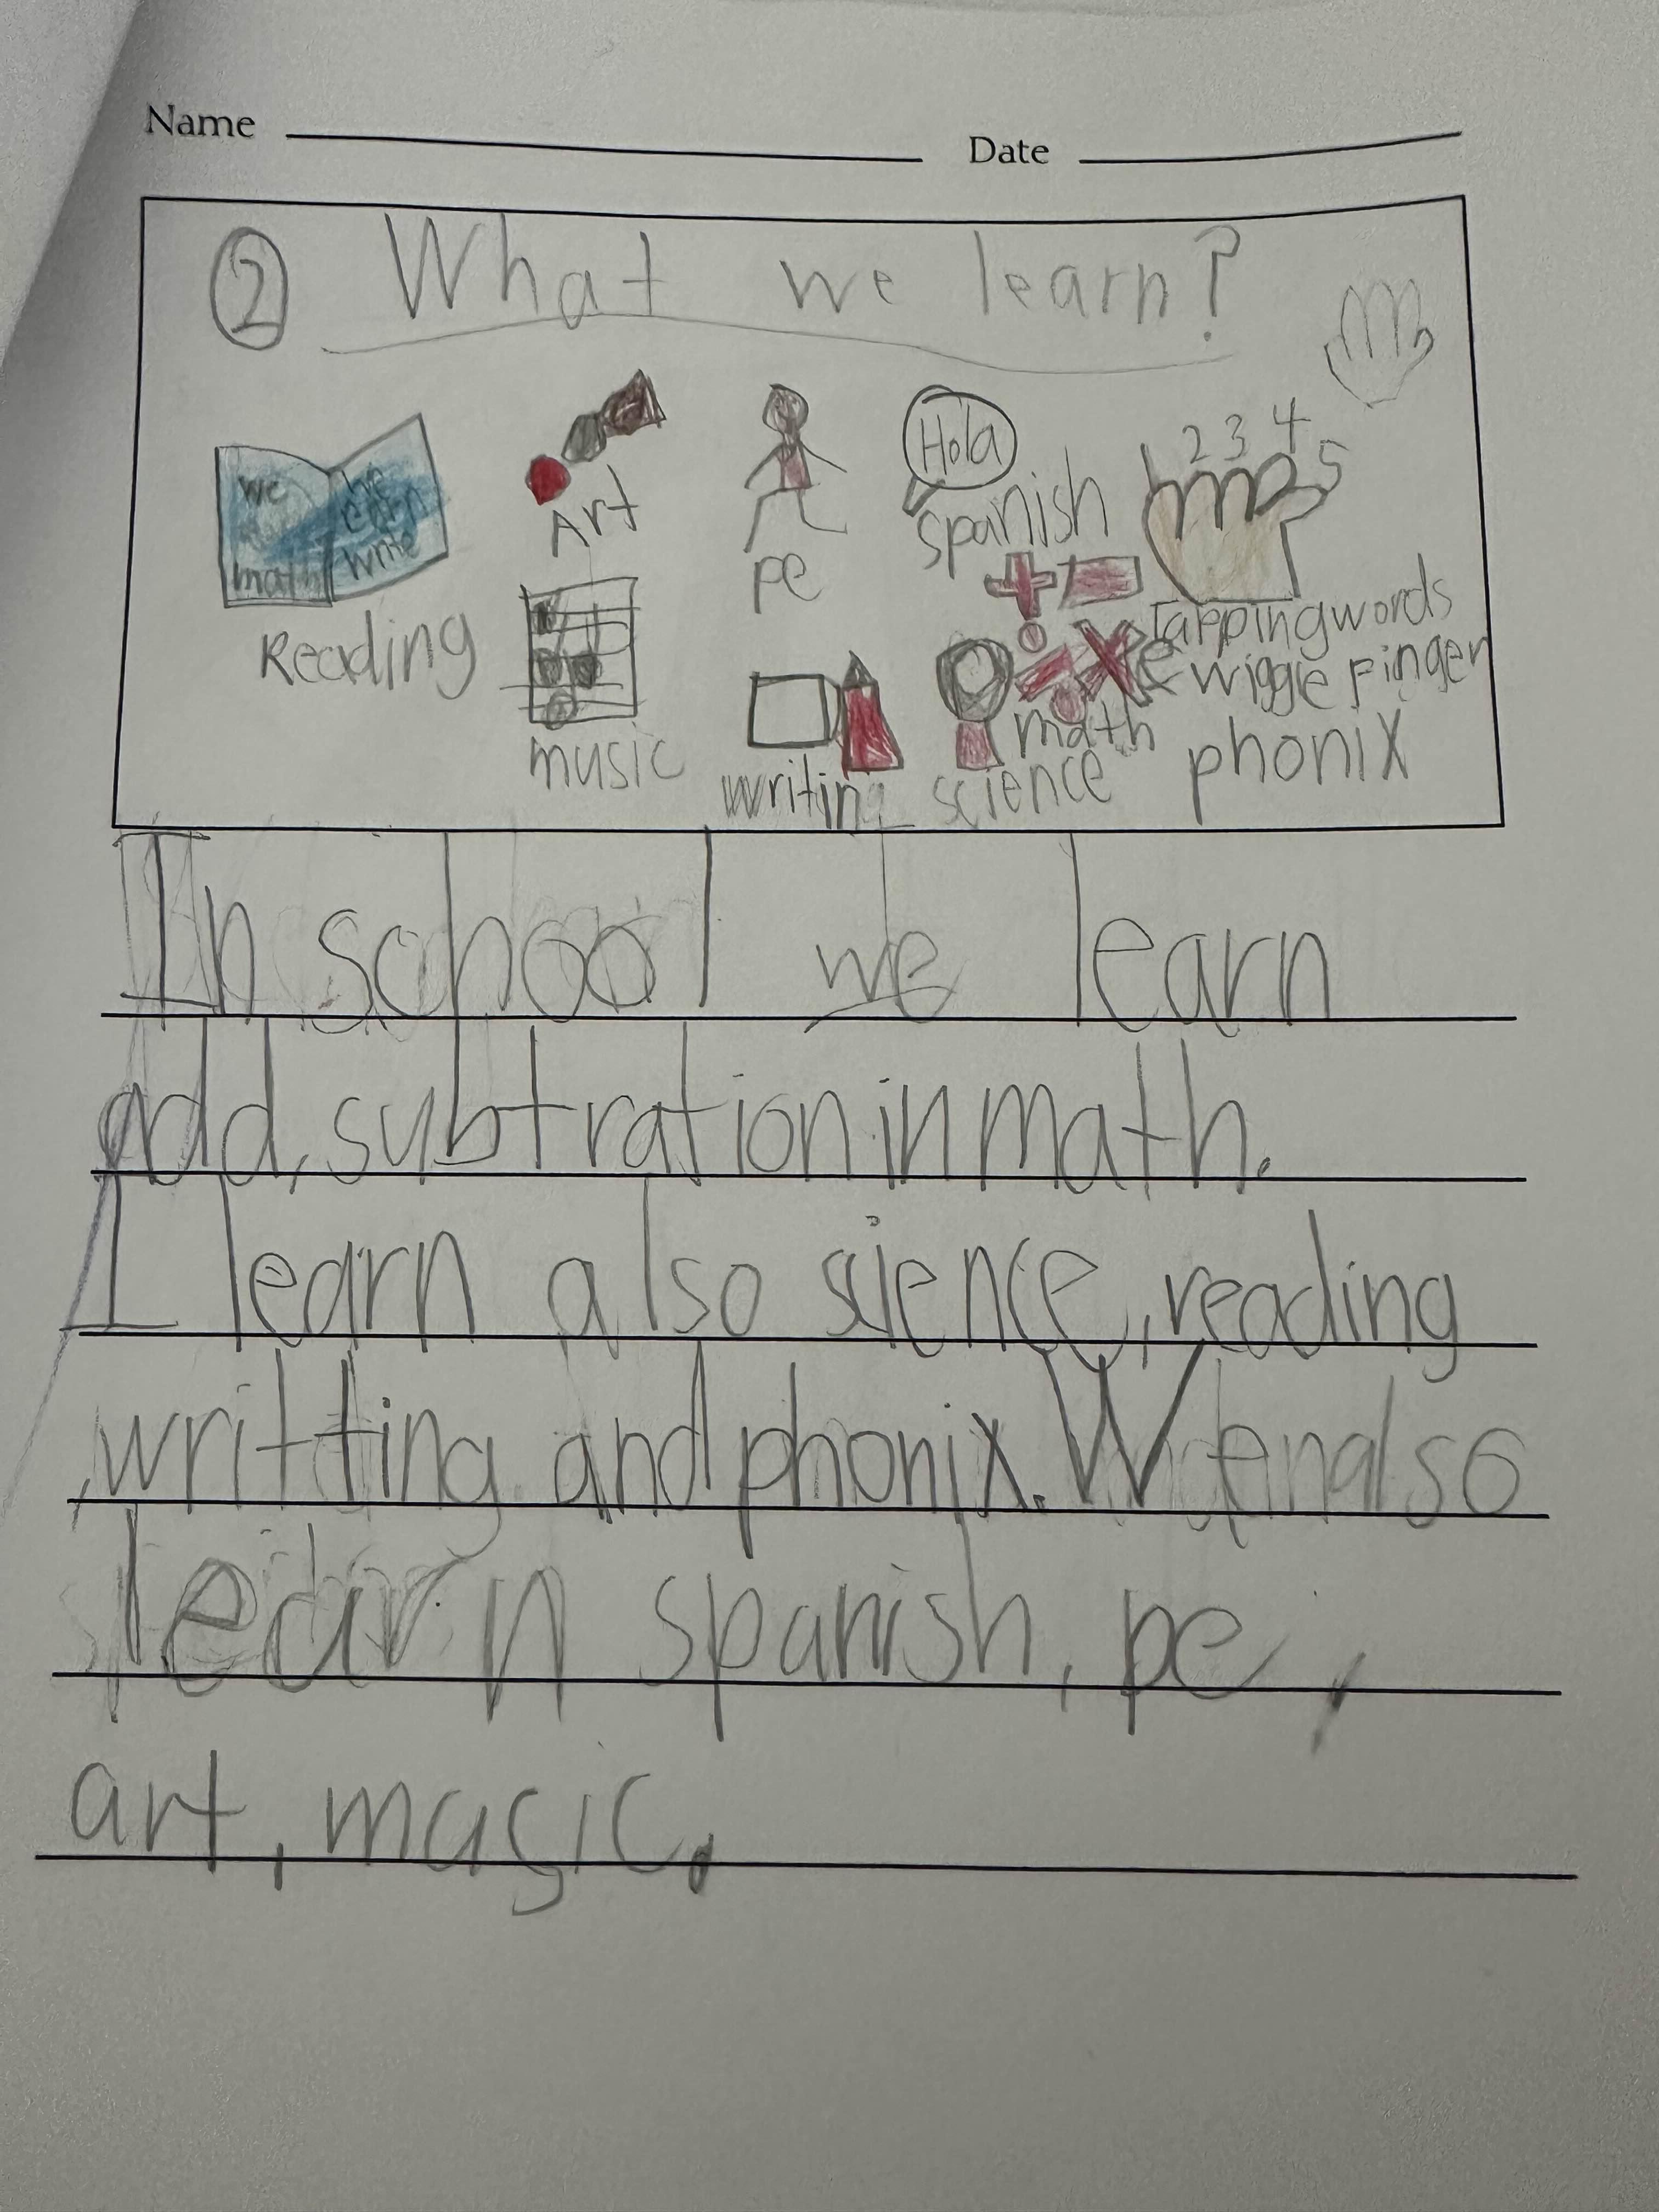 Name Date
② What we learn?
we we
learn
math write
Reading
Art
pe
Hola
Spanish
1 2 3 4 5
Tapping words
wiggle finger
phonix
music
writing
math
science
In school we learn
add, subtration in math.
I learn also sience, reading
, writting and phonix. We also
learn spanish, pe,
art, music.